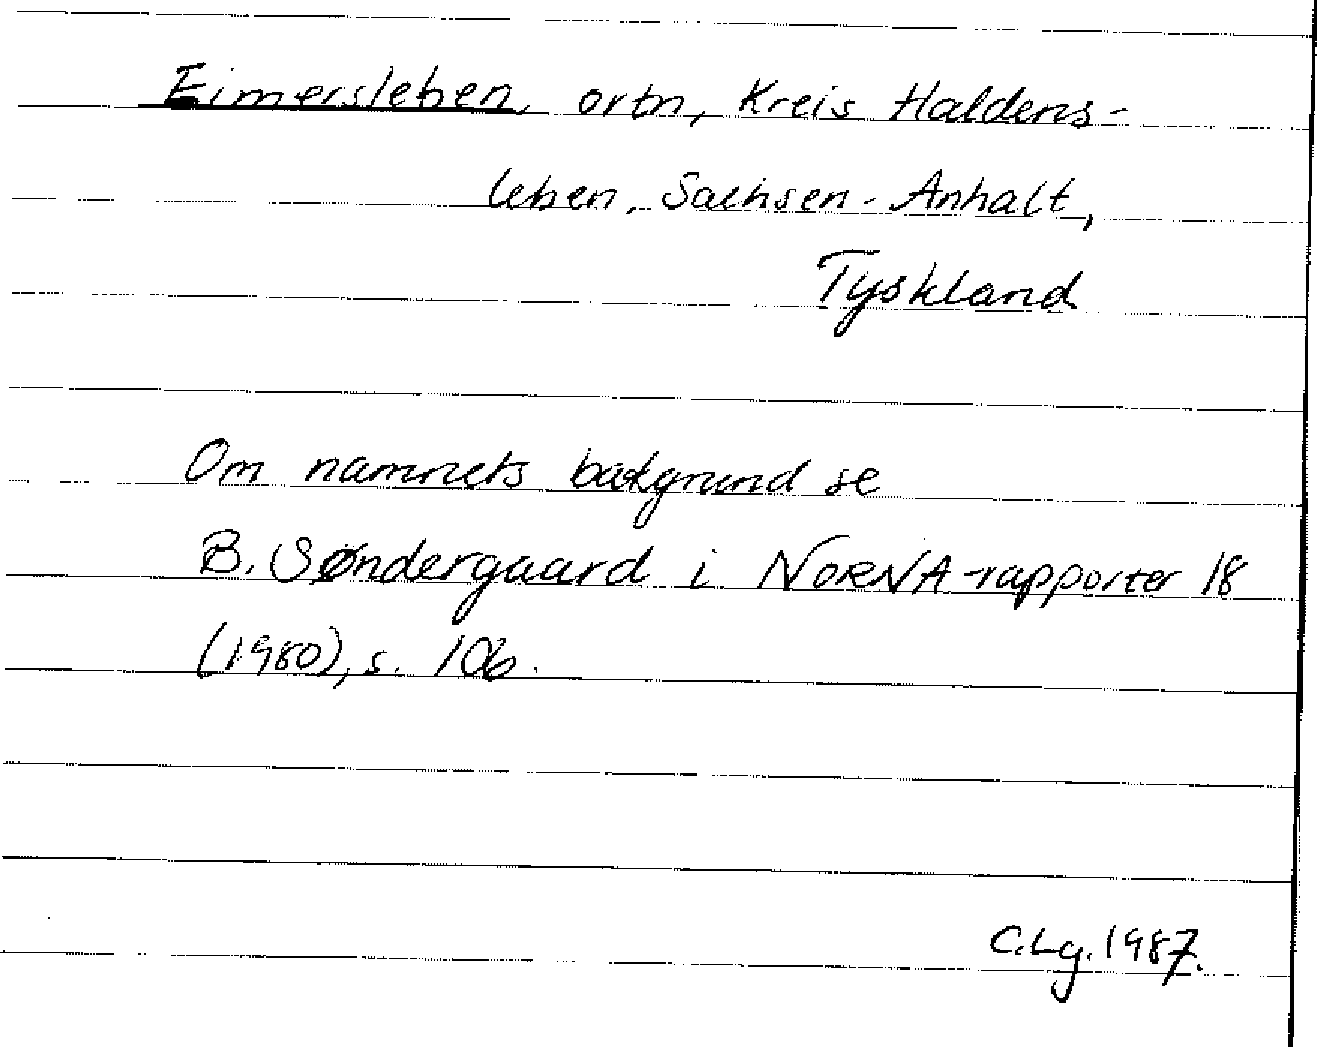 Eimersleben, ortn, Kreis Haldens-
leben, Sachsen-Anhalt,
Tyskland
Om namnets bakgrund se
B. Søndergaard i NORNA-rapporter 18
(1980), s. 106.
C.Lg. 1987.